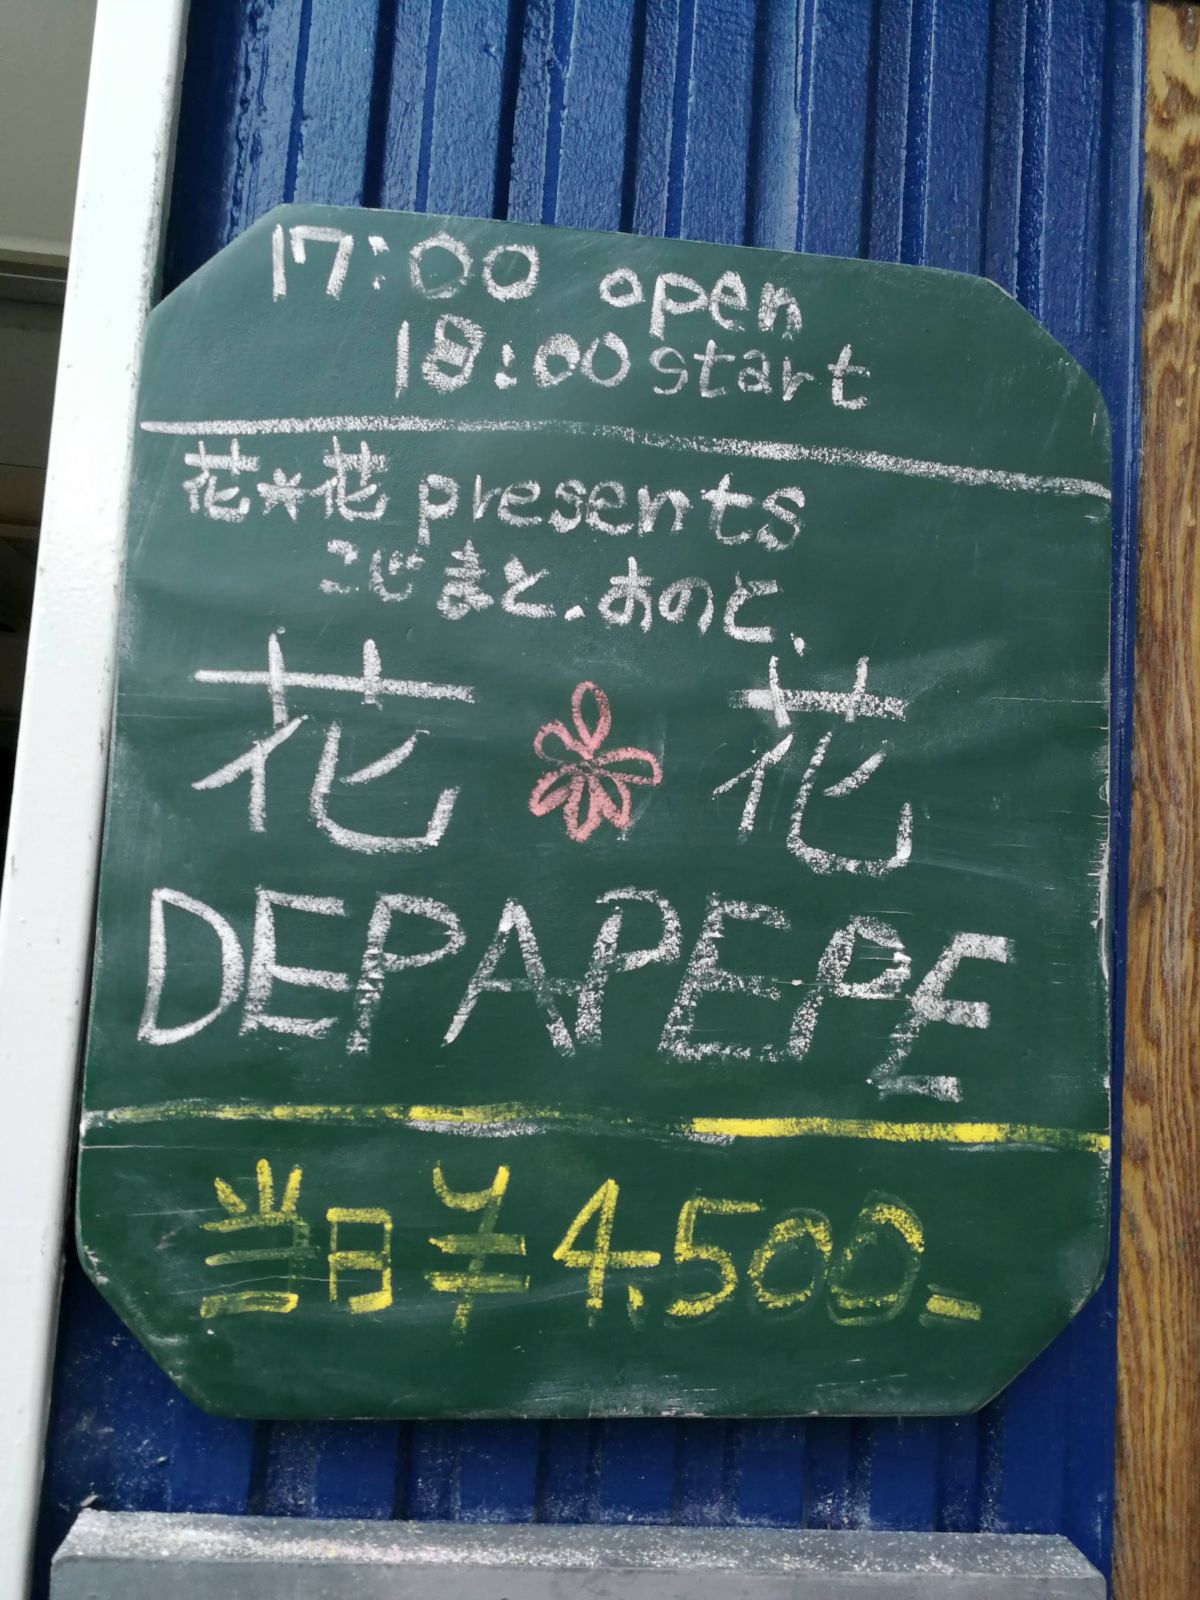 17:00 open
18:00 start
花*花 presents
こじまと、おのと、
花 花
DEPAPEPE
当日¥4,500-